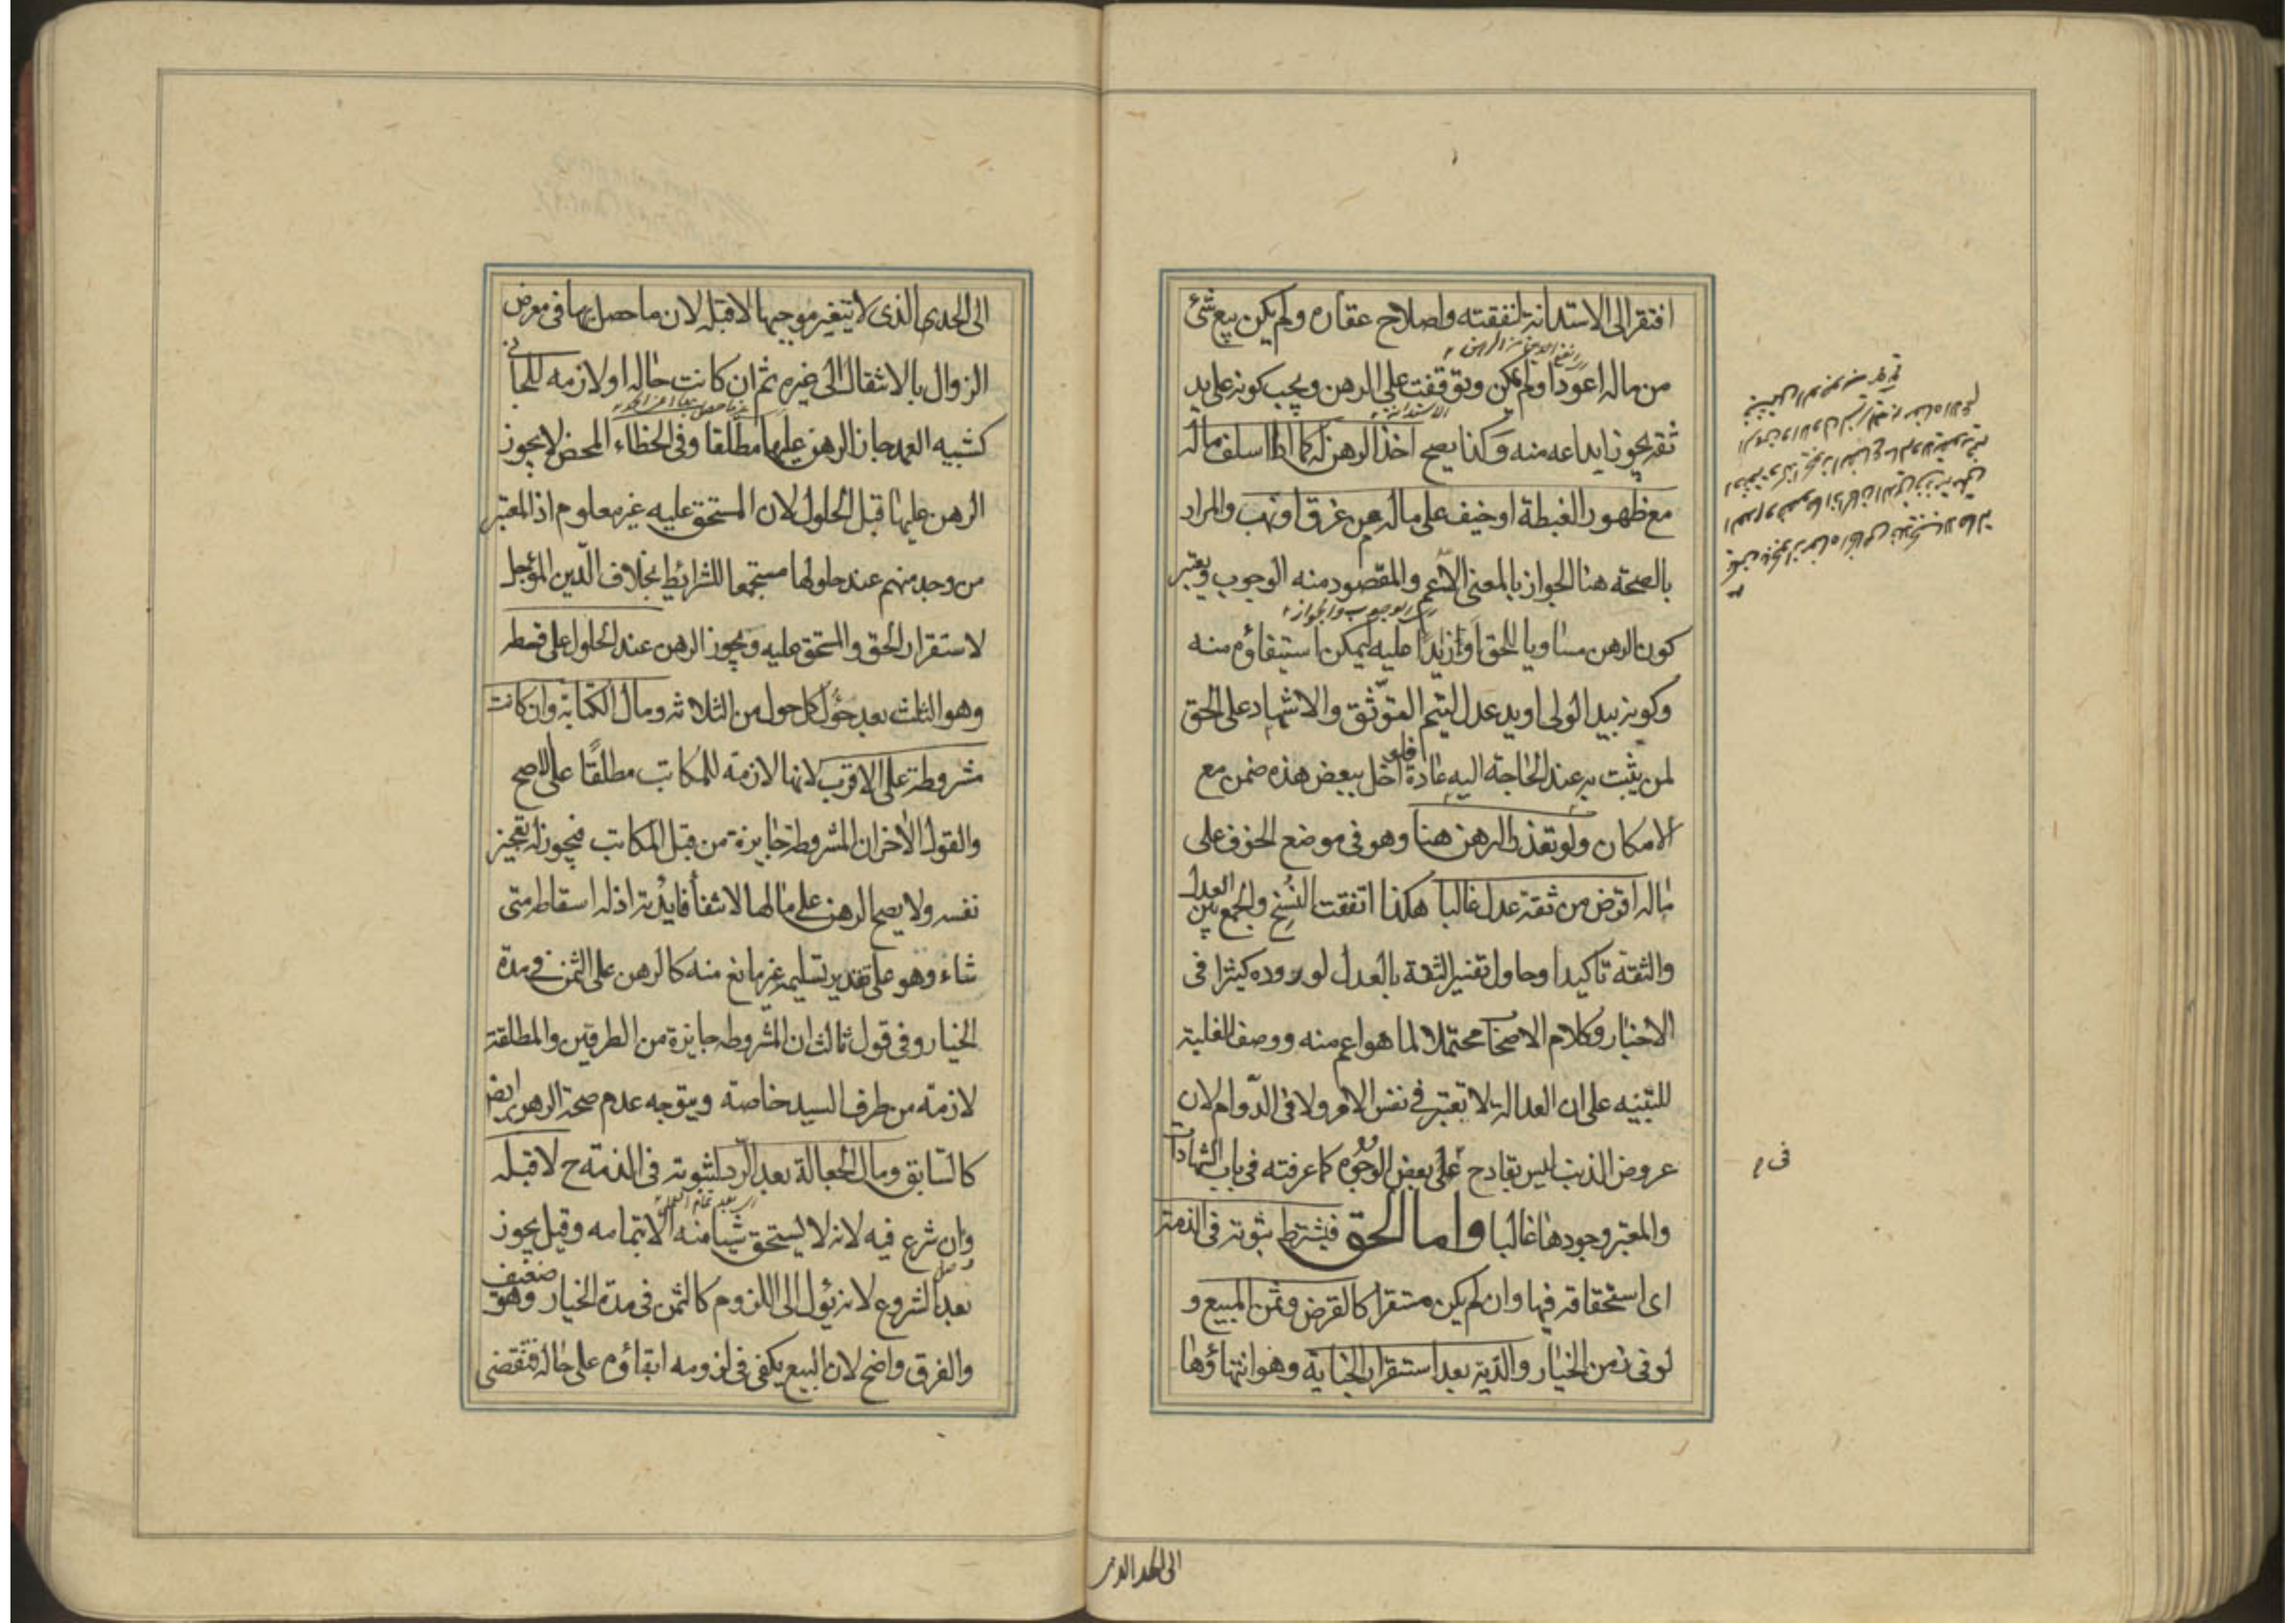 افتقر الى الاستدانة لنفقته واصلاح عقاره ولم يكن بيع شئ
من ماله اعود او لم يمكن وتوقفت على الرهن ويجب كونه على يد
ثقة يجوز ايداعه منه وكذا يصح اخذ الرهن له كما اذا اسلف ماله
مع ظهور الغبطة او خيف على ماله من غرق او نهب والمراد
بالصحة هنا الجواز بالمعنى الاعم والمقصود منه الوجوب ويعتبر
كون الرهن مساويا للحق او ازيد عليه ليمكن استيفاؤه منه
وكونه بيد الولى او يد عدل ليتم التوثق والاشهاد على الحق
لمن يثبت به عند الحاجة اليه عادة فلو اخل ببعض هذه ضمن مع
الامكان ولو تعذر الرهن هنا وهو فى موضع الخوف على
ماله اقرض من ثقة عدل غالبا هكذا اتفقت النسخ والجمع بين العدل
والثقة تاكيدا وحاول تفسير الثقة بالعدل لوروده كثيرا فى
الاخبار وكلام الاصحاب محتملا لما هو اعم منه ووصف الغلبة
للتنبيه على ان العدالة لا تعتبر فى نفس الامر ولا فى الدوام لان
عروض الذنب ليس بقادح على بعض الوجوه كما عرفته فى باب الشهادات
والمعتبر وجودها غالبا واما الحق فيشترط ثبوته فى الذمة
اى استحقاقه فيها وان لم يكن مستقرا كالقرض وثمن المبيع و
لو فى زمن الخيار والدية بعد استقرار الجناية وهو انتهاؤها
الى الحد الذى
الى الحد الذى لا يتغير موجبها لا قبله لان ما حصل بها فى معرض
الزوال بالانتقال الى غيره ثم ان كانت حالة او لازمة للجانى
كشبيه العمد جاز الرهن عليها مطلقا وفى الخطاء المحض لا يجوز
الرهن عليها قبل الحلول لان المستحق عليه غير معلوم اذ المعتبر
من وجد منهم عند حلولها مستجمعا للشرائط بخلاف الدين المؤجل
لاستقرار الحق والمستحق عليه ويجوز الرهن عند الحلول على قسطه
وهو الثلث بعد حؤل كل حول من الثلاثة ومال الكتابة وان كانت
مشروطة على الاقرب لانها لازمة للمكاتب مطلقا على الاصح
والقول الاخر ان المشروطة جايزة من قبل المكاتب فيجوز له تعجيز
نفسه ولا يصح الرهن على مالها لانتفاء فايدته اذ له اسقاطه متى
شاء وهو على تقدير تسليمه غير مانع منه كالرهن على الثمن فى مدة
الخيار وفى قول ثالث ان المشروطة جايزة من الطرفين والمطلقة
لازمة من طرف السيد خاصة ويتوجه عدم صحة الرهن ايضا
كالسابق ومال الجعالة بعد الرد لثبوته فى الذمة ح لا قبله
وان شرع فيه لانه لا يستحق شيئا منه الا بتمامه وقيل يجوز
بعد الشروع لانه يؤل الى اللزوم كالثمن فى مدة الخيار وهو ضعيف
والفرق واضح لان البيع يكفى فى لزومه ابقاؤه على حاله فتقضى